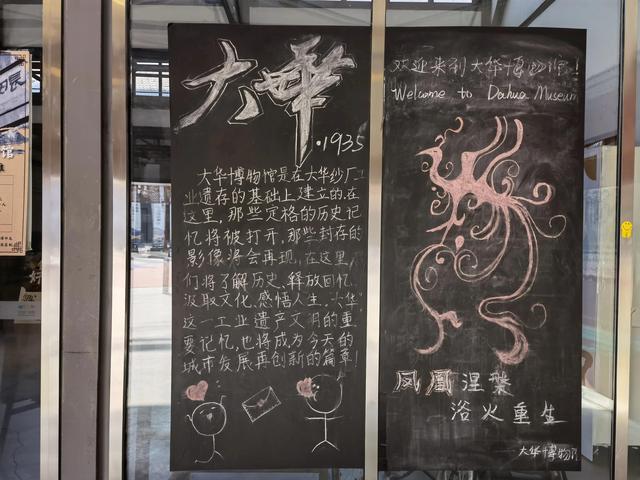 大华
·1935
大华博物馆是在大华纱厂工
业遗存的基础上建立的.在
这里，那些定格的历史记
忆将被打开，那些封存的
影像将会再现，在这里，
们将了解历史、释放回忆
汲取文化、感悟人生，大华
这一工业遗产文明的重
要记忆，也将成为今天的
城市发展再创新的篇章！
欢迎来到大华博物馆！
Welcome to Dahua Museum
凤凰涅槃
浴火重生
大华博物
辰
馆